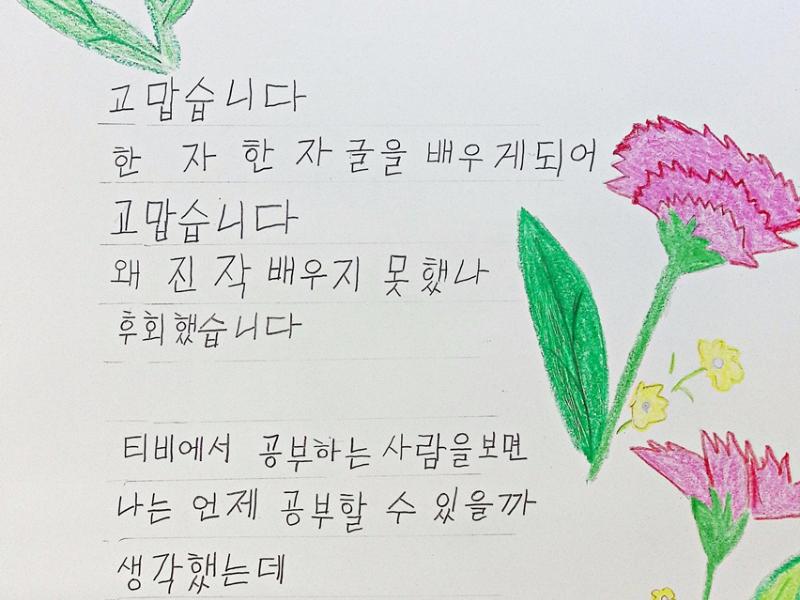 고맙습니다
한 자 한 자 글을 배우게되어
고맙습니다
왜 진작 배우지 못했나
후회했습니다
티비에서 공부하는 사람을보면
나는 언제 공부할 수 있을까
생각했는데